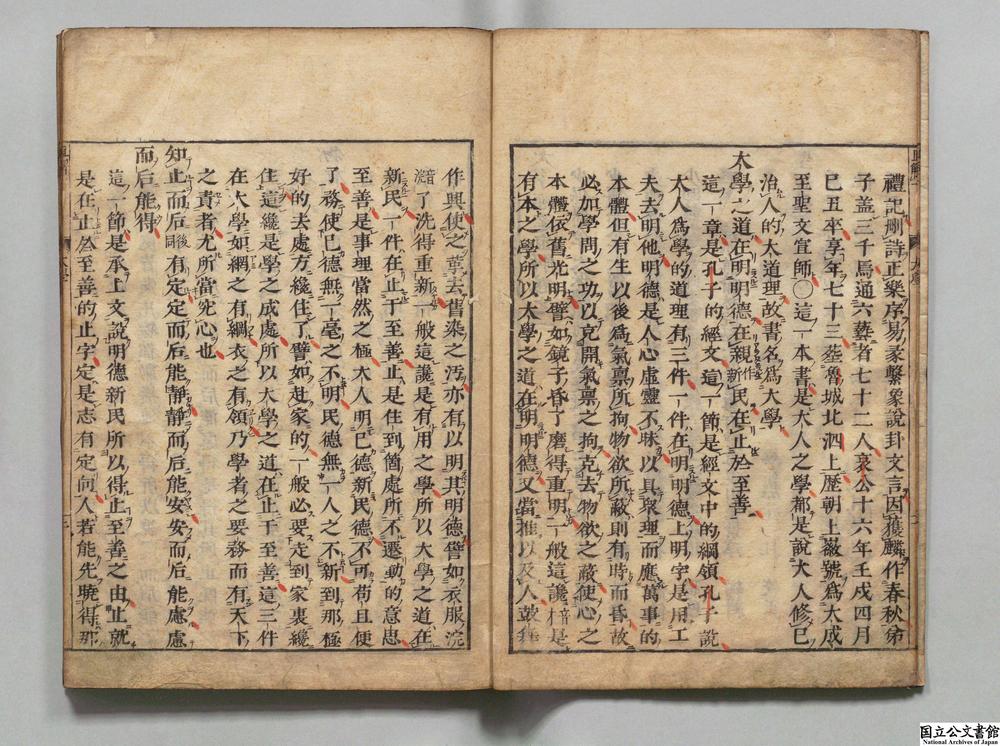 禮記刪詩正樂序易彖繫象說卦文言因獲麟作春秋弟
子蓋三千焉通六藝者七十二人哀公十六年壬戌四月
己丑卒享年七十三葬魯城北泗上歷朝上徽號爲大成
至聖文宣師○這一本書是大人之學都是說大人修己
治人的大道理故書名爲大學
大學之道在明明德在親民在止於至善
這一章是孔子的經文這一節是經文中的綱領孔子說
大人爲學的道理有三件一件在明明德上明字是用工
夫去明他明德是人心虛靈不昧以具衆理而應萬事的
本體但有生以後爲氣稟所拘物欲所蔽則有時而昏故
必加學問之功以克開氣稟之拘克去物欲之蔽使心之
本體依舊光明譬如鏡子昏了磨得重明一般這纔是
有本之學所以大學之道在明明德又當推以及人鼓舞
作興使之革去舊染之汚亦有以明其明德譬如衣服涴
了洗得重新一般這纔是有用之學所以大學之道在
新民一件在止于至善止是住到箇處所不遷動的意思
至善是事理當然之極大人明己德新民德不可苟且便
了務使己德無一毫之不明民德無一人之不新到那極
好的去處方纔住了譬如赴家的一般必要走到家裏纔
住這纔是學之成處所以大學之道在止于至善這三件
在大學如網之有綱衣之有領乃學者之要務而有天下
之責者尤所當究心也
知止而后有定定而后能靜靜而后能安安而后能慮慮
而后能得
這一節是承上文說明德新民所以得止至善之由止就
是在止於至善的止字定是志有定向人若能先曉得那